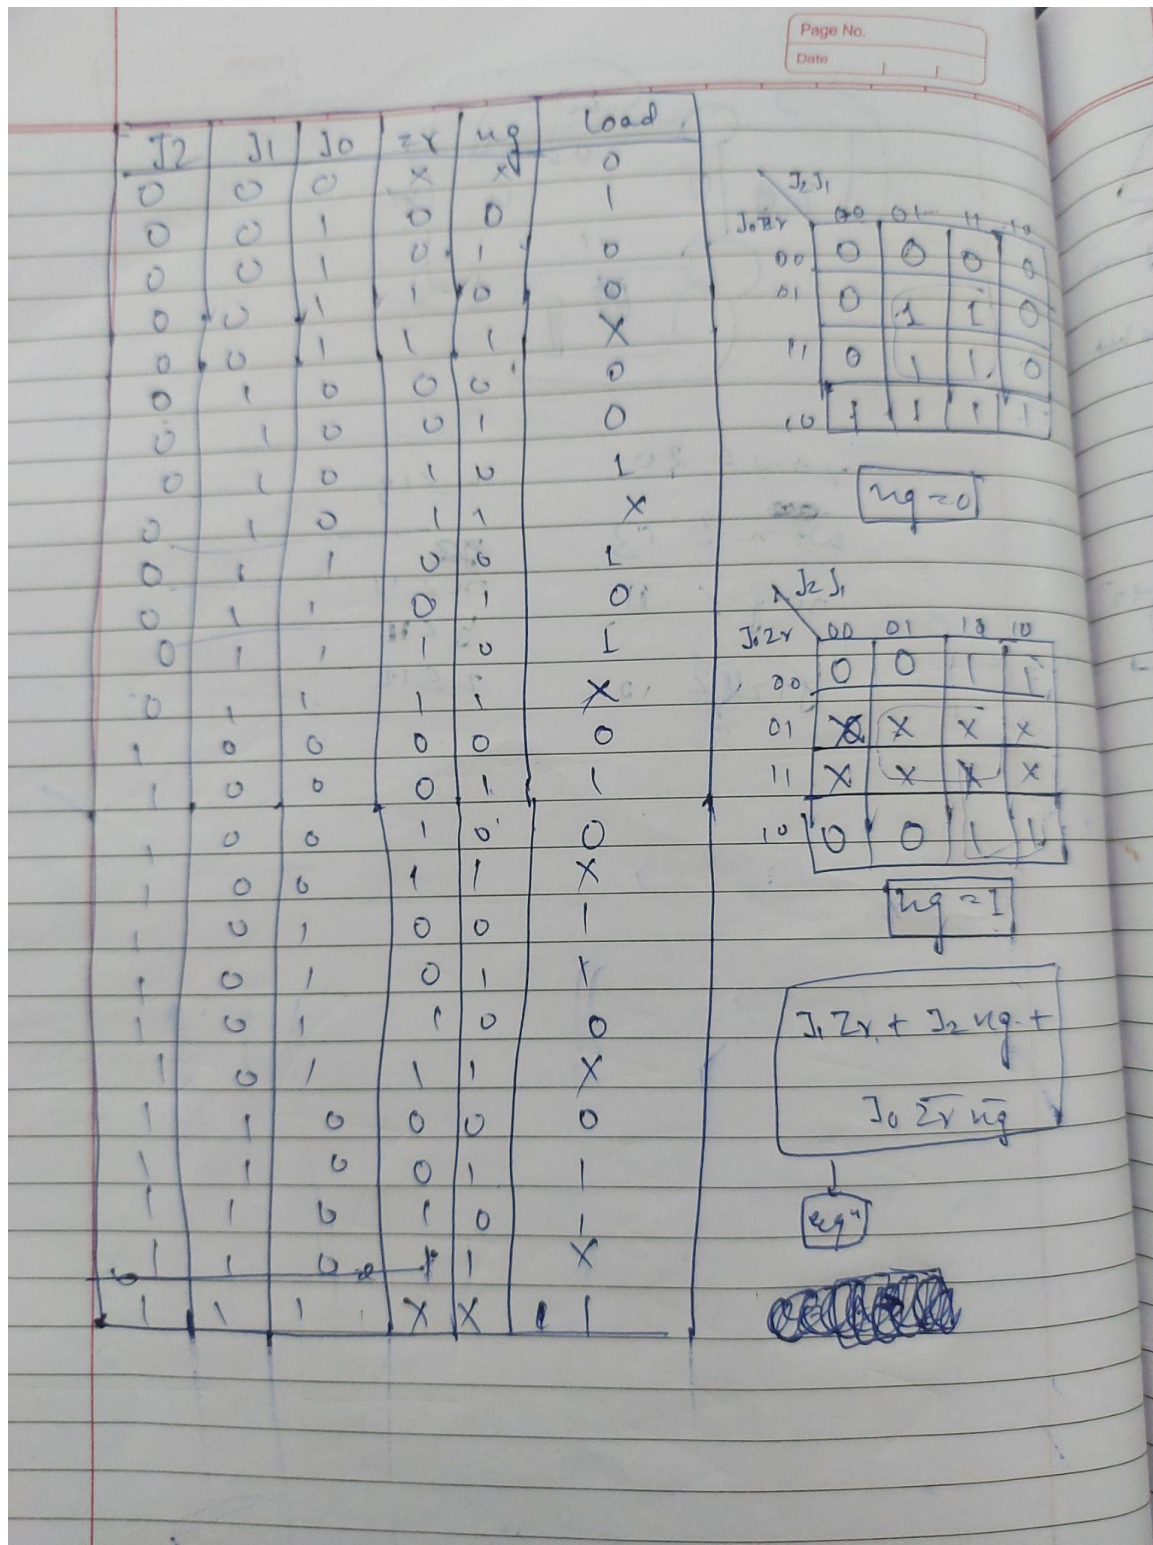 Page No.
Date
J2 J1 J0 zr ng Load
0 0 0 X X 0
0 0 1 0 0 1
0 0 1 0 1 0
0 0 1 1 0 0
0 0 1 1 1 X
0 1 0 0 0 0
0 1 0 0 1 0
0 1 0 1 0 1
0 1 0 1 1 X
0 1 1 0 0 1
0 1 1 0 1 0
0 1 1 1 0 1
0 1 1 1 1 X
1 0 0 0 0 0
1 0 0 0 1 1
1 0 0 1 0 0
1 0 0 1 1 X
1 0 1 0 0 1
1 0 1 0 1 1
1 0 1 1 0 0
1 0 1 1 1 X
1 1 0 0 0 0
1 1 0 0 1 1
1 1 0 1 0 1
1 1 0 1 1 X
1 1 1 X X 1
J2 J1
J0 zr 00 01 11 10
00 0 0 0 0
01 0 1 1 0
11 0 1 1 0
10 1 1 1 1
ng = 0
J2 J1
J0 Zr 00 01 10 10
00 0 0 1 1
01 X X X X
11 X X X X
10 0 0 1 1
ng = 1
J1 Zr + J2 ng +
J0 Z̄r n̄g
eqn